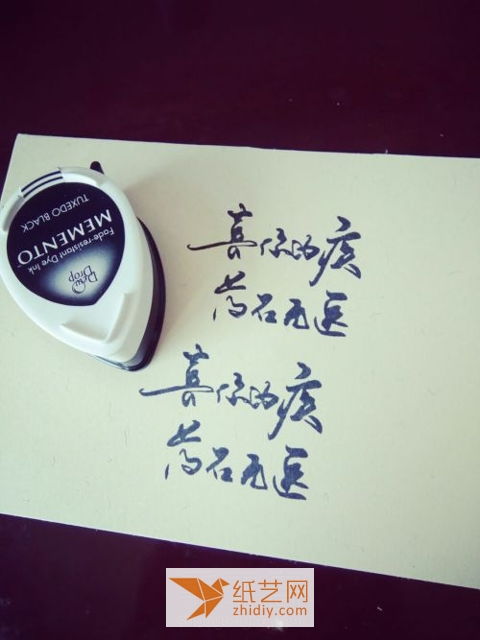 喜你的疾
药石无医
喜你的疾
药石无医
TUXEDO BLACK
MEMENTO™
Fade-resistant Dye Ink
Dew Drop
纸艺网
zhidiy.com